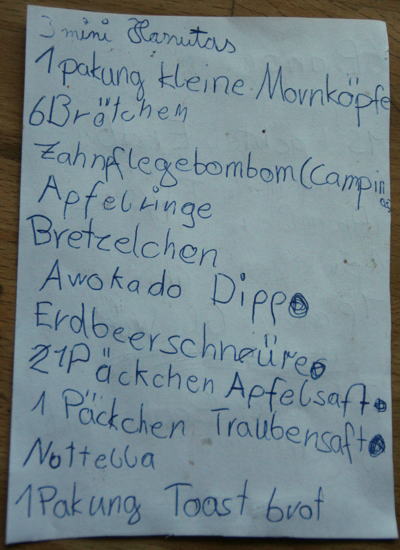 3 mini Hanutas
1 pakung kleine Mornköpfe
6 Brötchen
Zahnpflegebombom (Campin
Apfelringe
Bretzelchen
Awokado Dipp
Erdbeerschnüre
1 Päckchen Apfelsaft
1 Päckchen Traubensaft
Nottella
1 Pakung Toast brot